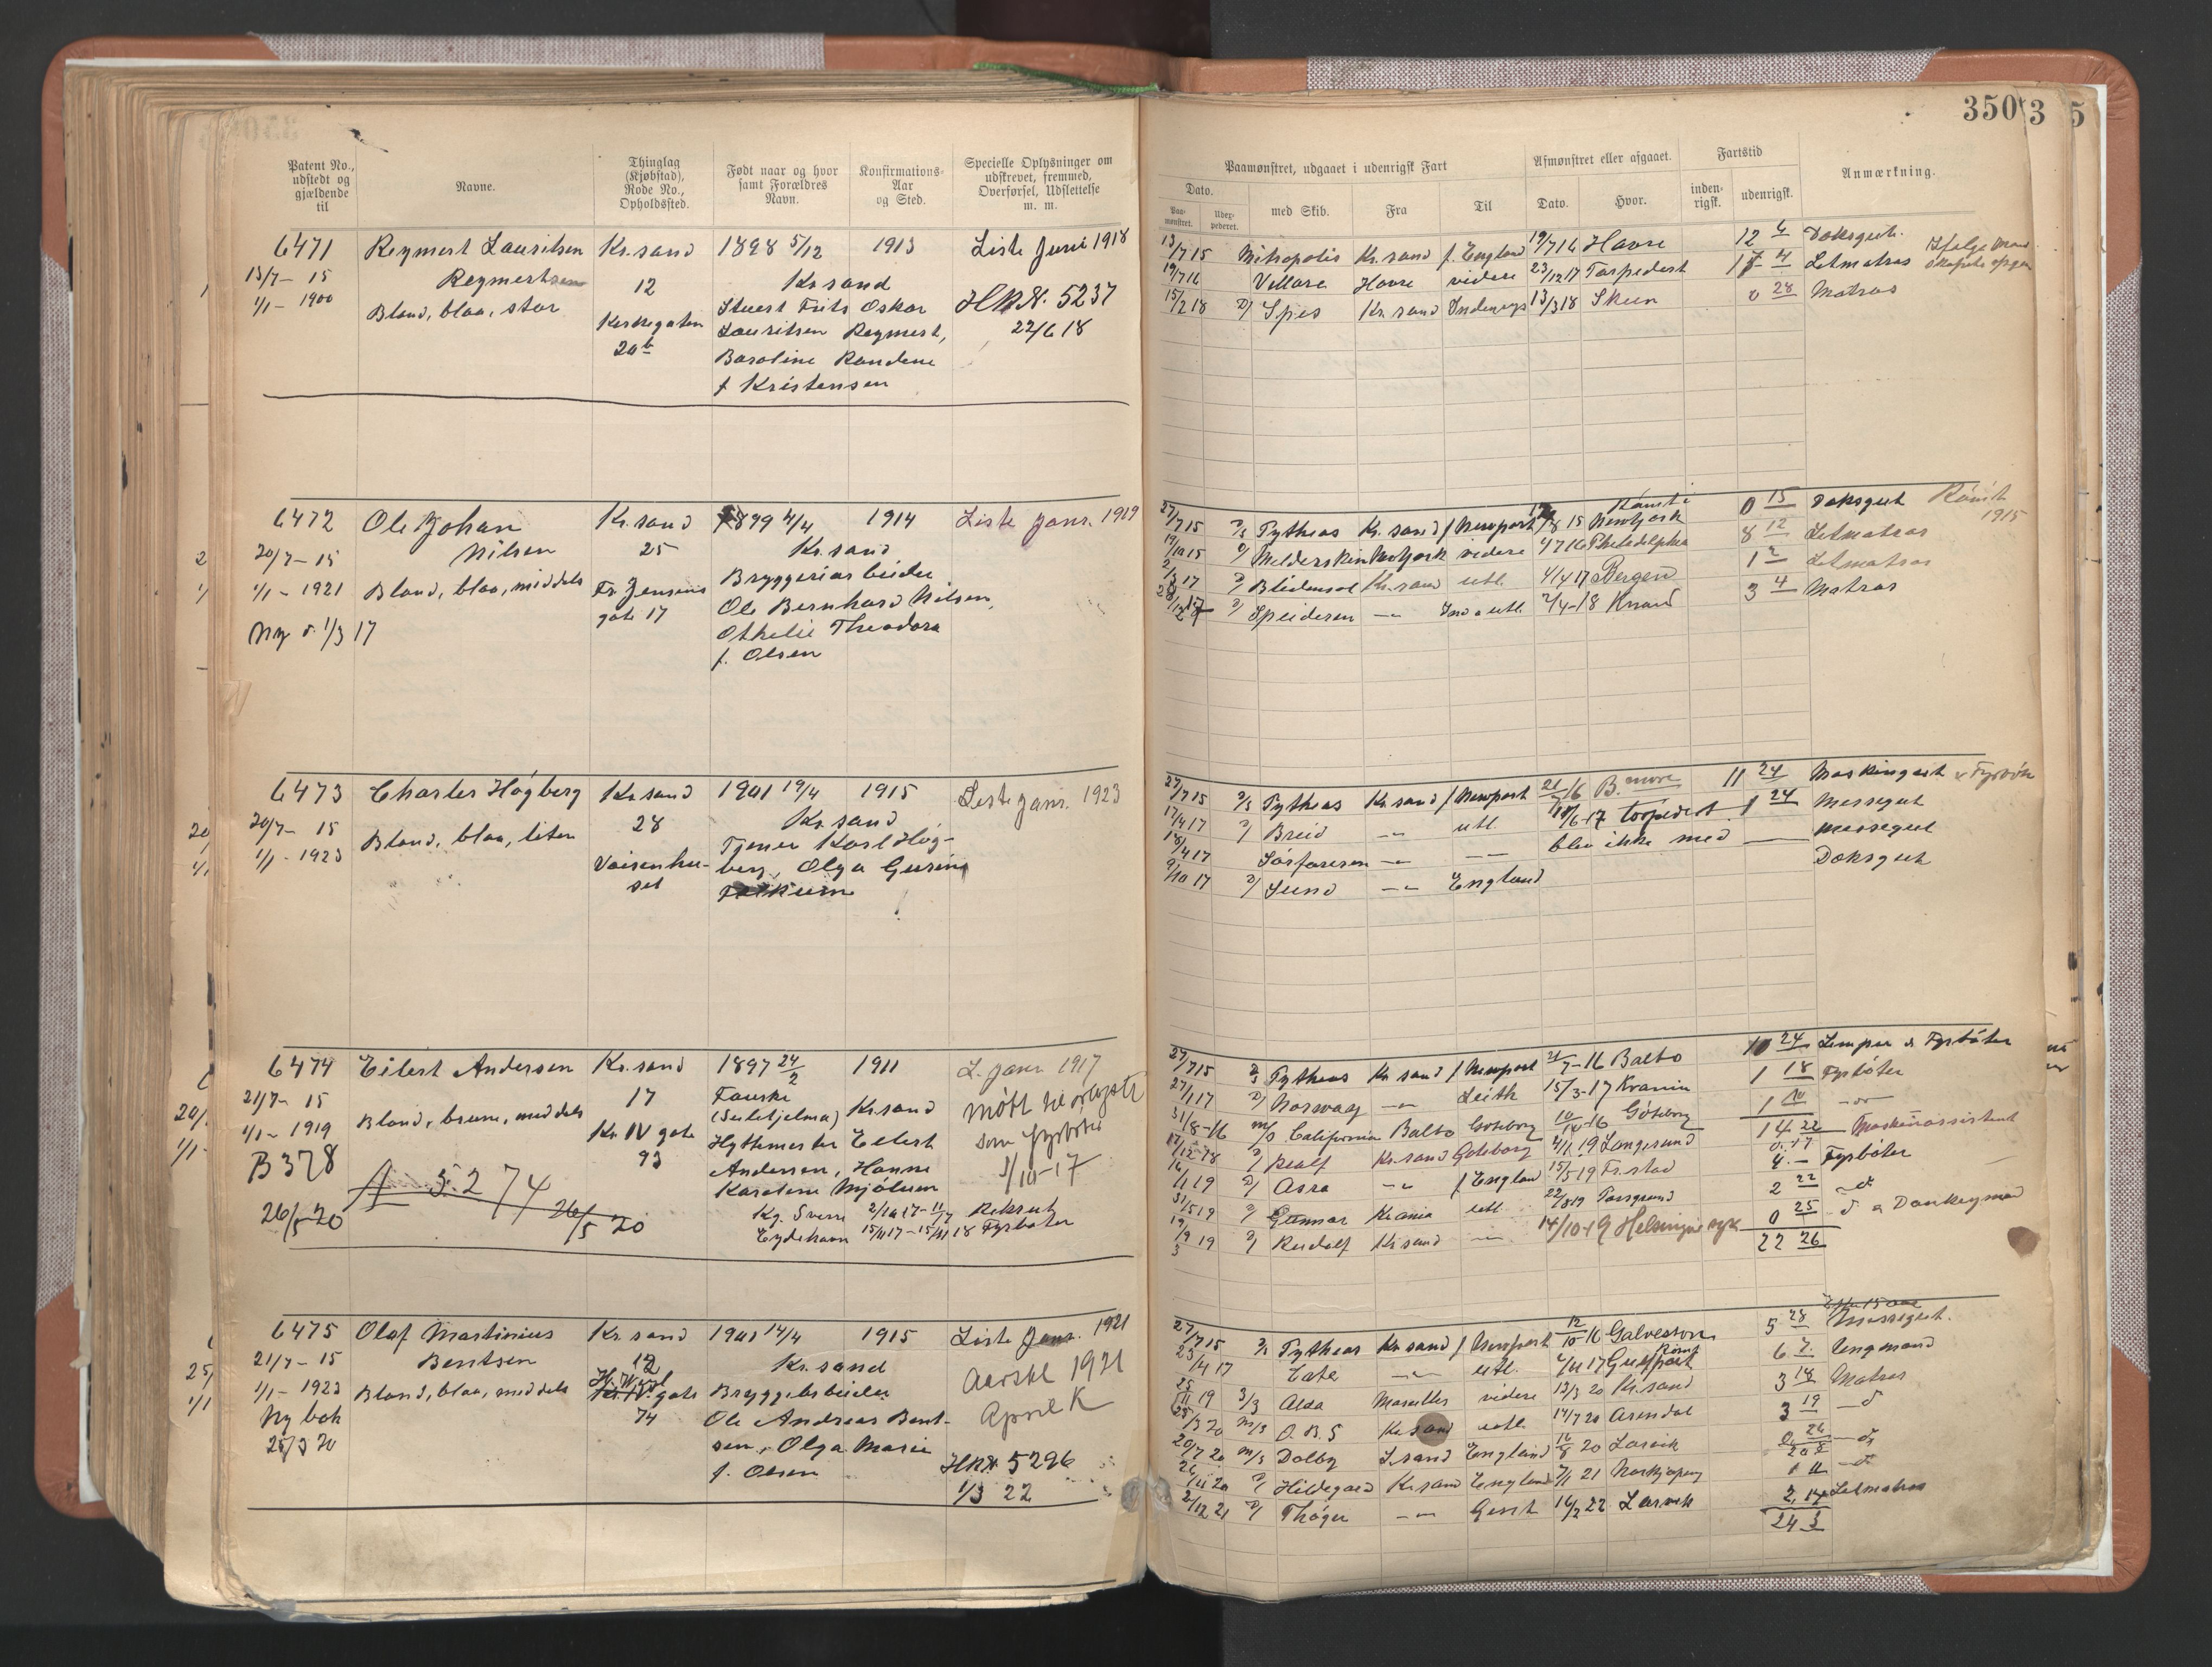 350 3 5
Patent No., udstedt og gjældende til
Navne.
Thinglag (Kjøbstad), Rode No., Opholdssted.
Født naar og hvor samt Forældres Navn.
Konfirmations-Aar og Sted.
Specielle Oplysninger om udskrevet, fremmed, Overførsel, Udslettelse m. m.
Paamønstret, udgaaet i udenrigsk Fart
Afmønstret eller afgaaet.
Fartstid
Anmærkning.
Dato.
Paa-mønstret.
Udex-pederet.
med Skib.
Fra
Til
Dato.
Hvor.
inden-rigsk.
udenrigsk.
6471 Reymert Lauritsen Kr.sand 1898 5/12 1913 Liste Juni 1918
13/7 - 15 Reymertsen 12 Kr.sand
1/1 - 1900 Blond, blaa, stor Stuert Frits Oskar HRN. 5237
Kirkegaten Lauritsen Reymert, 22/6 18
20b Randene
f Kristensen
13/7 15 Mitropolis Kr.sand f. England 19/7 16 Havre 12 6 Daksgut.
19/7 16 Villare Havre videre 23/12 17 Torpedert 17 4 Letmatros
15/2 18 D/ Spes Kr.sand Indenrigs 13/3 18 Skien 0 28 Matros
6472 Ole Johan Kr.sand 1899 4/4 1914 Liste Janr. 1919
20/7 - 15 Nilsen 25 Kr.sand
1/1 - 1921 Blond, blaa, middels Fr. Jensens Bryggeriarbeider
gate 17 Ole Bernhard Nilsen,
Ny d. 1/3 17 Othelie Theodora
f. Olsen
27/7 15 D/S Pytheas Kr.sand f Newport 8 15 Newyork 0 15 Daksgut Rømt 1915
Rømt i
19/10 15 D/ Melderskin Newyork videre 4/7 16 Philadelphia 8 12 Letmatros
3 17 D/ Kr.sand utl. 4/4 17 Bergen 1 2 Letmatros
D/ Speidersen - " - Ind & utl. 2/4 - 18 Krsand 3 4 Matros
6473 Charles Høgberg Kr.sand 1901 19/4 1915 Liste Janr. 1923
20/7 - 15 28 Kr.sand
1/1 - 1923 Blond, blaa, liten Tjener Karl Høg-
Vaisenhu- berg, Olga
set
27/7 15 D/S Pytheas Kr.sand f Newport 21/ 16 B.more 11 24 Maskingut & Fyrbøt
17/4 17 D/ Breid - " - utl. 6 - 17 torpedert 1 24 Messegut
18/4 17 Sørfareren - " - - " - blev ikke med — Messegut
9/10 17 D/ Lund - " - England Daksgut
6474 Eilert Andersen Kr.sand 1897 24/2 1911 L. Janr 1917
21/7 - 15 17 Fauske Møtt til
1/1 - 1919 Blond, brune, middels (Sulitjelma) Kr.sand som fyrbøter
B 378 Kr IV gate Hyttemester Eilert 1/10 - 17
93 Andersen, Hanne
A 5274 26/5 20 Karoline Mjølsen
26/5 20 Kg. Sverre 2/10 17 - 11/ Rekrut
Eydehavn 15/11 17 - 15/ 18 Fyrbøter
27/7 15 D/S Pytheas Kr sand f Newport 21/7 - 16 Balto 10 24 Lemper & Fyrbøter
27/1 17 D/ Norway - " - Leith 15/3 - 17 Krania 1 18 Fyrbøter
31/8 - 16 M/S California Balto Goteborg 10/ 16 Göteborg 1 10 - " -
17/12 - 18 D/ Realf Kr.sand Goteborg 4/1 19 Langesund 14 22 Maskinassistent
0 17
16/1 19 D/ Asra - " - f England 15/5 19 Fr.stad 4 - Fyrbøter
31/5 19 D/ Gunnar Krania utl. 22/8 19 Porsgrund 2 22 - d
19/9 19 D/ Rudolf Kr.sand - " - 14/10 - 19 Helsingør syk 0 25 d & Donkeymand
22 26
6475 Olaf Martinius Kr sand 1901 14/4 1915 Liste Janr. 1921
21/7 - 15 Bentsen 12 Kr.sand Aarskl 1921
1/1 - 1923 Blond, blaa, middels Kr. IV. gate Bryggearbeider April K
Ny bok 74 Ole Andreas Bent-
25/3 20 sen, Olga Marie
f. Olsen HRN 5296
1/3 22
27/7 15 D/S Pytheas Kr sand f Newport 12/10 16 Galveston 5 28 Messegut.
23/4 17 Tate - " - utl. 4/11 17 Gulfport Rømt 6 7 Ungmand
25/11 19 S/S Alda Marseilles videre 13/3 20 Kr.sand 3 18 Matros
25/3 20 M/S O.B.S Kr.sand utl. 14/7 20 Arendal 3 19 - d
20/7 20 M/S Dolby England 16/8 20 Larvik 0 26 - d
20 8
26/11 20 D/ Hildegard Kr.sand England 7/1 21 Norkjøping 1 11 - d
2/12 21 D/ Thøger - " - Gent 16/2 22 Larvik 2 14 Letmatros
24 3